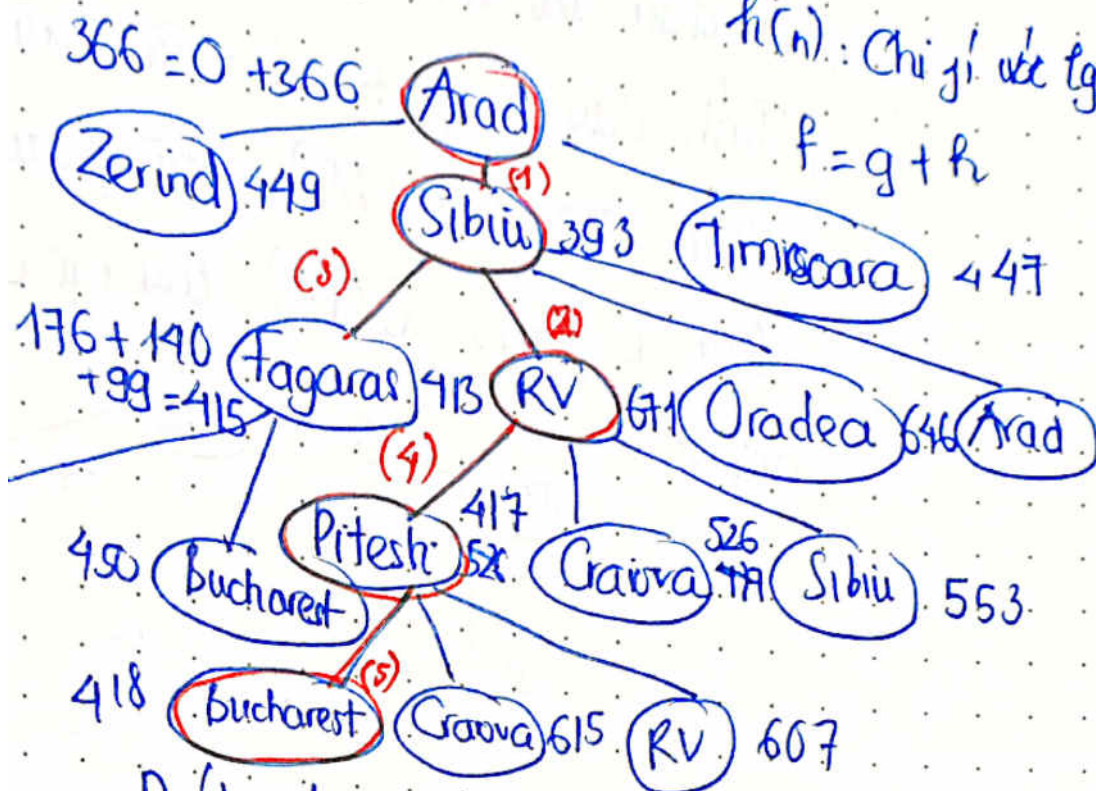 h(n): Chi
366 = 0 + 366
Arad
f = g + h
Zerind 449
(1)
Sibiu 393
Timisoara 447
(3)
(2)
176 + 140
+ 99 = 415
Fagaras 413
RV 671
Oradea 646
Arad
(4)
450 Bucharest
Pitesti 417
Craiova 526
Sibiu 553
418 Bucharest
(5)
Craova 615
RV 607